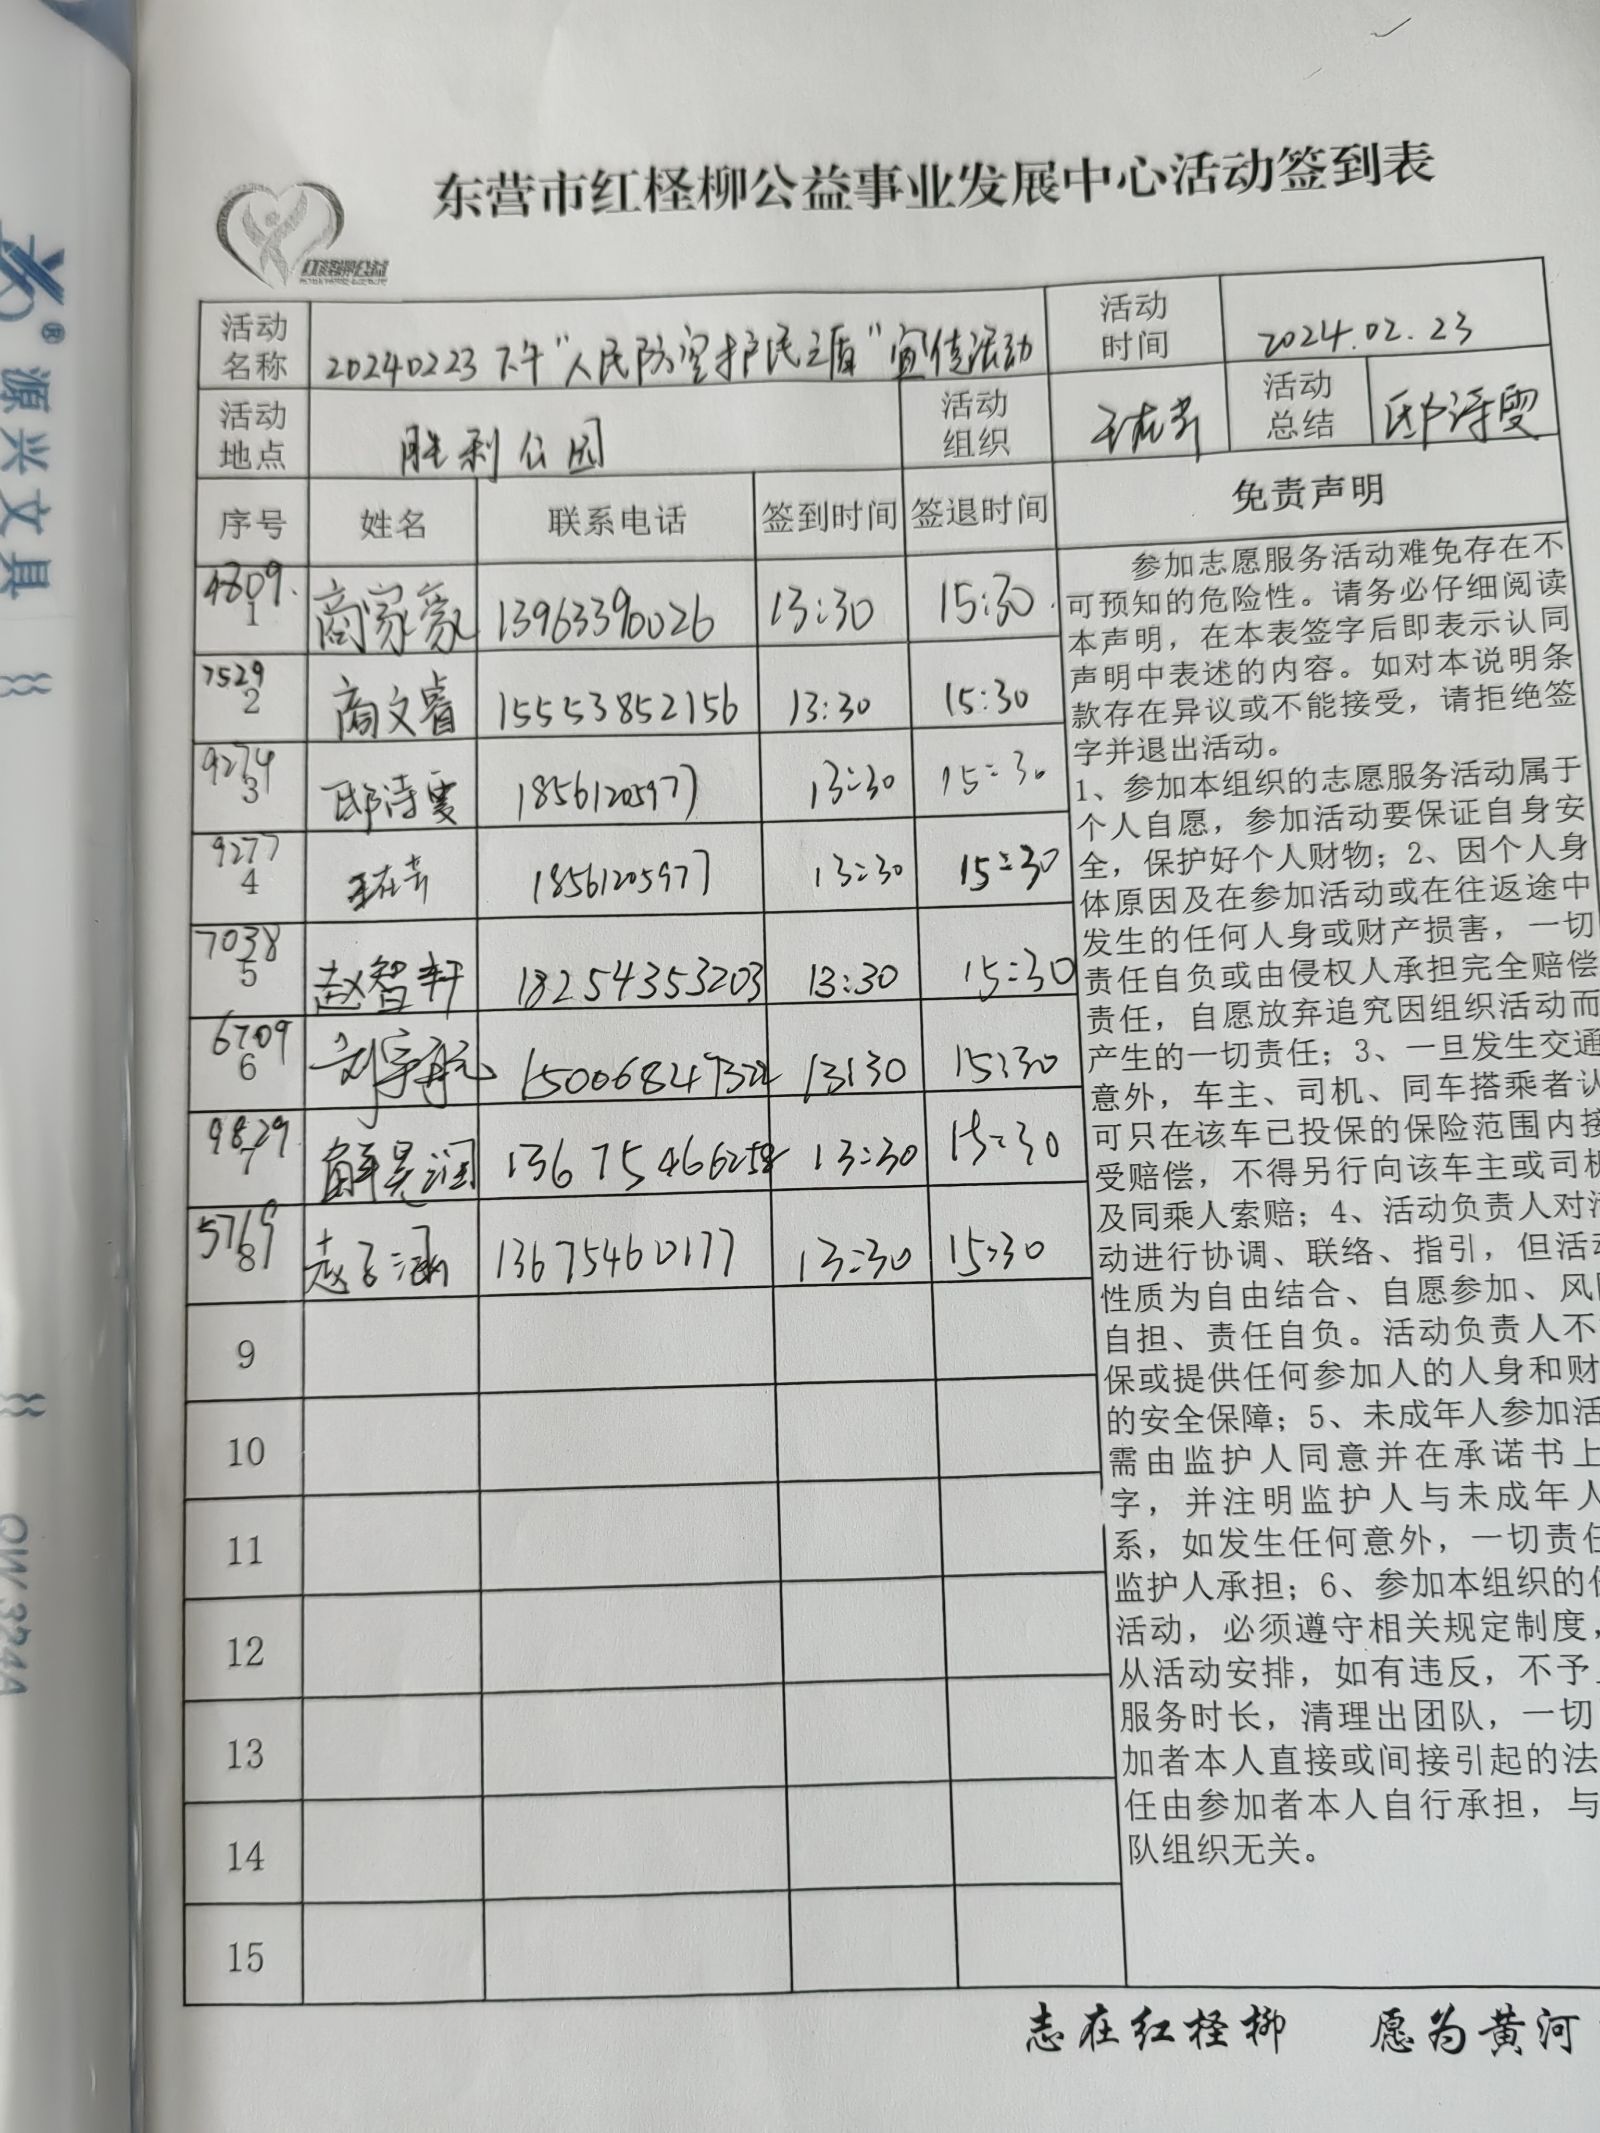 东营市红柽柳公益事业发展中心活动签到表
红柽柳公益
活动名称 20240223下午"人民防空护民之盾"宣传活动 活动时间 2024.02.23
活动地点 胜利公园 活动组织 王在芳 活动总结 邸诗雯
序号 姓名 联系电话 签到时间 签退时间 免责声明
4809. 1 商家豪 13963390026 13:30 15:30.
7529 2 商文睿 15553852156 13:30 15:30
9274 3 邸诗雯 18561205977 13:30 15:30
9277 4 王在芳 18561205977 13:30 15:30
7038 5 赵智轩 18254353203 13:30 15:30
6709 6 刘宇航 15006847322 13:30 15:30
9829 7 解昊润 13675466258 13:30 15:30
5769 8 赵子涵 13675460177 13:30 15:30
9
10
11
12
13
14
15
参加志愿服务活动难免存在不
可预知的危险性。请务必仔细阅读
本声明，在本表签字后即表示认同
声明中表述的内容。如对本说明条
款存在异议或不能接受，请拒绝签
字并退出活动。
1、参加本组织的志愿服务活动属于
个人自愿，参加活动要保证自身安
全，保护好个人财物；2、因个人身
体原因及在参加活动或在往返途中
发生的任何人身或财产损害，一切
责任自负或由侵权人承担完全赔偿
责任，自愿放弃追究因组织活动而
产生的一切责任；3、一旦发生交通
意外，车主、司机、同车搭乘者认
可只在该车已投保的保险范围内接
受赔偿，不得另行向该车主或司机
及同乘人索赔；4、活动负责人对活
动进行协调、联络、指引，但活动
性质为自由结合、自愿参加、风
自担、责任自负。活动负责人不
保或提供任何参加人的人身和财
的安全保障；5、未成年人参加活
需由监护人同意并在承诺书上
字，并注明监护人与未成年人
系，如发生任何意外，一切责任
监护人承担；6、参加本组织的
活动，必须遵守相关规定制度，
从活动安排，如有违反，不予
服务时长，清理出团队，一切
加者本人直接或间接引起的法
任由参加者本人自行承担，与
队组织无关。
志在红柽柳 愿为黄河
源兴文具
QW 324A